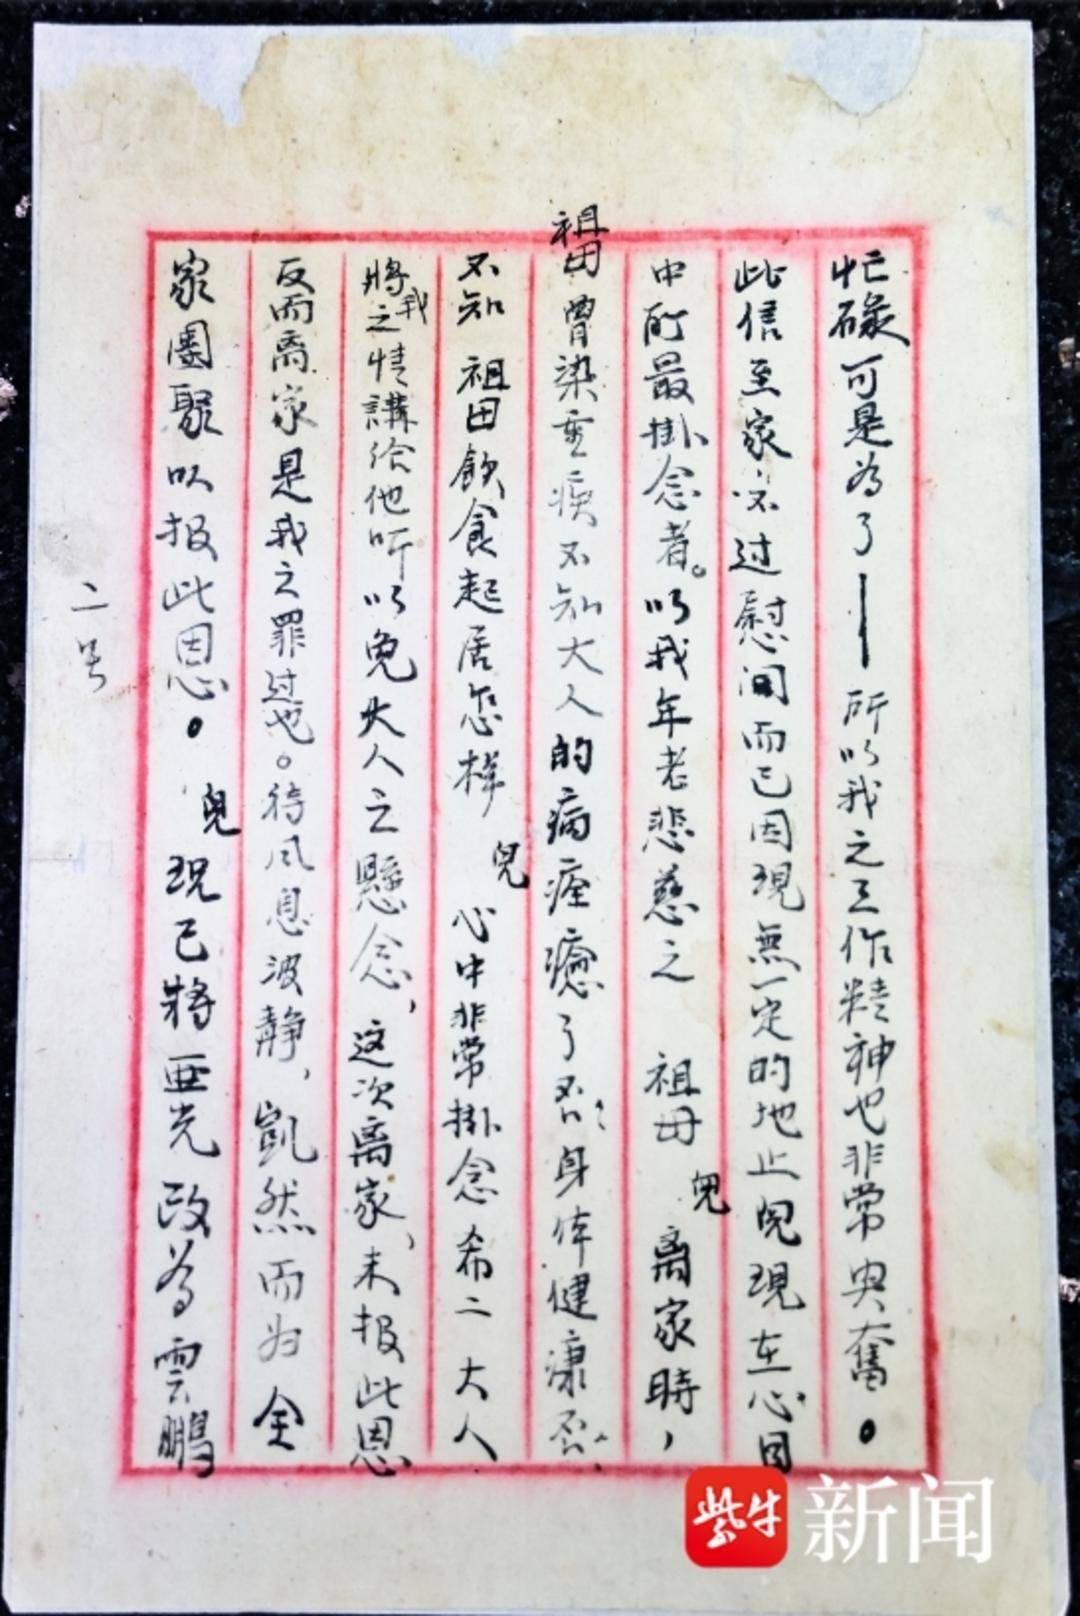 忙碌可是為了——所以我之工作精神也非常兴奮。
此信至家不过慰问而已因現無一定的地止兒現在心目
中所最掛念者。以我年老悲慈之 祖母 兒离家時，
祖田曾染重疾不知大人的病痊癒了否、身体健康否、
不知 祖田飲食起居怎样 兒心中非常掛念希二大人
將我之情講给他听以免大人之懸念，这次离家、未报此恩
反而离家是我之罪过也。待风息波静，凱然而为全
家團聚以报此恩。 兒現已將亜光改為雲鵬
二号
紫牛新闻